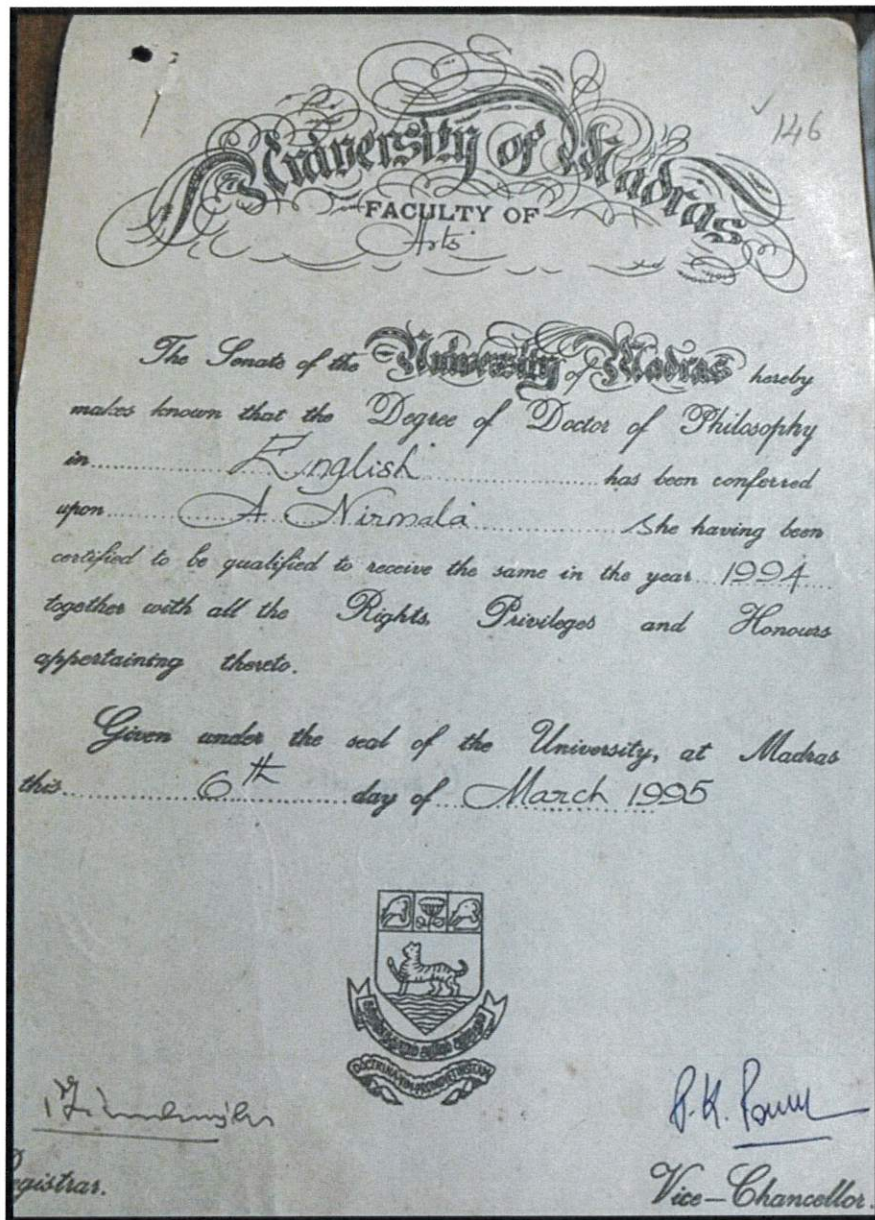 146
University of Madras
FACULTY OF
Arts
The Senate of the University of Madras hereby
makes known that the Degree of Doctor of Philosophy
in.......... English .......... has been conferred
upon.......... A Nirmala .......... She having been
certified to be qualified to receive the same in the year...1994....
together with all the Rights, Privileges and Honours
appertaining thereto.
Given under the seal of the University, at Madras
this.......... 6th ..........day of... March 1995
DOCTRINA VIM PROMOVET INSITAM
egistrar.
Vice-Chancellor.